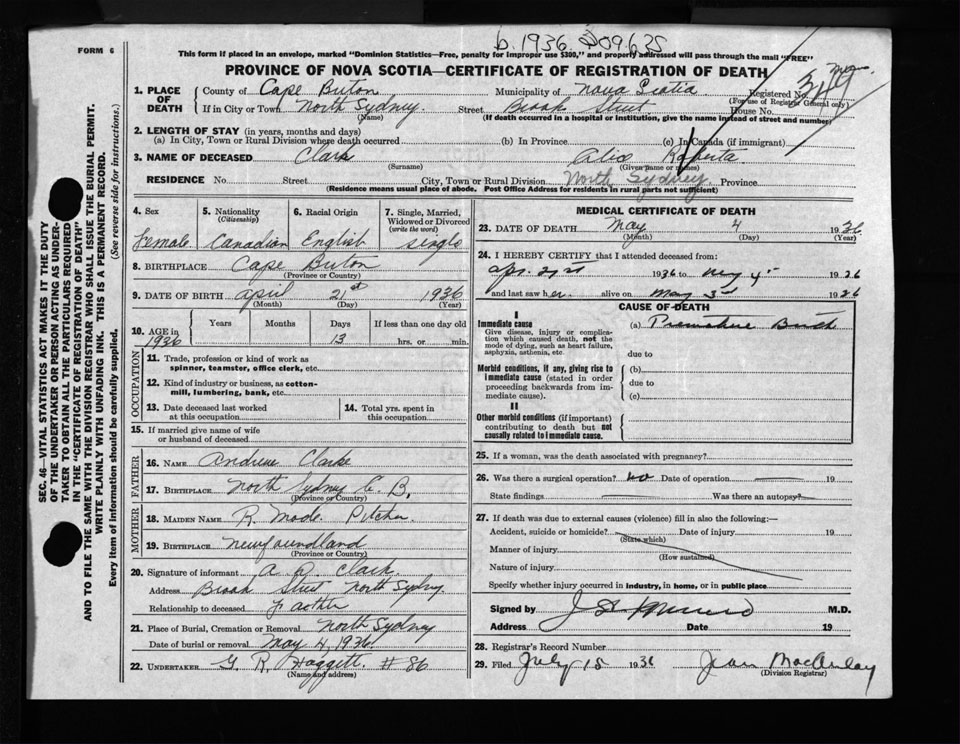 b. 1936. 509635
FORM 6
This form if placed in an envelope, marked "Dominion Statistics—Free, penalty for improper use $300," and properly addressed will pass through the mail "FREE"
PROVINCE OF NOVA SCOTIA—CERTIFICATE OF REGISTRATION OF DEATH
SEC. 46—VITAL STATISTICS ACT MAKES IT THE DUTY
OF THE UNDERTAKER OR PERSON ACTING AS UNDER-
TAKER TO OBTAIN ALL THE PARTICULARS REQUIRED
IN THE "CERTIFICATE OF REGISTRATION OF DEATH"
AND TO FILE THE SAME WITH THE DIVISION REGISTRAR WHO SHALL ISSUE THE BURIAL PERMIT.
WRITE PLAINLY WITH UNFADING INK. THIS IS A PERMANENT RECORD.
Every item of information should be carefully supplied. (See reverse side for instructions.)
1. PLACE OF DEATH County of Cape Briton Municipality of Nova Scotia Registered No.
(For use of Registrar General only)
If in City or Town North Sydney. Street Brook Street House No.
(Name) (If death occurred in a hospital or institution, give the name instead of street and number)
2. LENGTH OF STAY (in years, months and days)
(a) In City, Town or Rural Division where death occurred (b) In Province (c) In Canada (if immigrant)
3. NAME OF DECEASED Clark Alice Roberta
(Surname) (Given name or names)
RESIDENCE No. Street City, Town or Rural Division North Sydney. Province
(Residence means usual place of abode. Post Office Address for residents in rural parts not sufficient)
4. Sex 5. Nationality (Citizenship) 6. Racial Origin 7. Single, Married, Widowed or Divorced (write the word)
female Canadian English single
8. BIRTHPLACE Cape Briton
(Province or Country)
9. DATE OF BIRTH april 21st 1936
(Month) (Day) (Year)
10. AGE in 1936 Years Months Days If less than one day old
13 hrs. or min.
OCCUPATION
11. Trade, profession or kind of work as
spinner, teamster, office clerk, etc.
12. Kind of industry or business, as cotton-
mill, lumbering, bank, etc.
13. Date deceased last worked
at this occupation
14. Total yrs. spent in
this occupation
15. If married give name of wife
or husband of deceased
FATHER
16. NAME Andrew Clarke
17. BIRTHPLACE North Sydney C. B.
(Province or Country)
MOTHER
18. MAIDEN NAME R. Made Pitcher
19. BIRTHPLACE Newfoundland
(Province or Country)
20. Signature of informant A R Clark.
Address Brook Street North Sydney.
Relationship to deceased faother
21. Place of Burial, Cremation or Removal North Sydney
Date of burial or removal May 4, 1936.
22. UNDERTAKER G. R. Haggett. # 86
(Name and address)
MEDICAL CERTIFICATE OF DEATH
23. DATE OF DEATH May 4 1936
(Month) (Day) (Year)
24. I HEREBY CERTIFY that I attended deceased from:
Apr. 21st 1936 to May 4 1936
and last saw her alive on May 3rd 1936
CAUSE OF DEATH
I
Immediate cause (a) Premature Birth
Give disease, injury or complica-
tion which caused death, not the
mode of dying, such as heart failure,
asphyxia, asthenia, etc.
due to
Morbid conditions, if any, giving rise to
immediate cause (stated in order
proceeding backwards from im-
mediate cause).
(b)
due to
(c)
II
Other morbid conditions (if important)
contributing to death but not
causally related to immediate cause.
25. If a woman, was the death associated with pregnancy?
26. Was there a surgical operation? no Date of operation 19
State findings Was there an autopsy?
27. If death was due to external causes (violence) fill in also the following:—
Accident, suicide or homicide? Date of injury 19
(State which)
Manner of injury
(How sustained)
Nature of injury
Specify whether injury occurred in industry, in home, or in public place
Signed by M.D.
Address Date 19
28. Registrar's Record Number
29. Filed July 15 1936 Jean MacAulay
(Division Registrar)